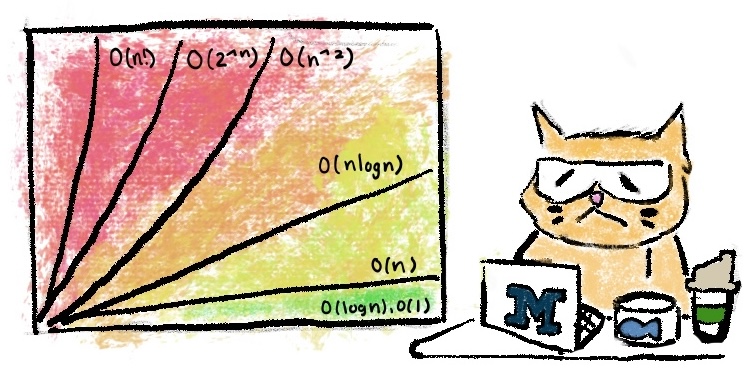 O(n!) O(2^n) O(n^2)
O(nlogn)
O(n)
O(logn),O(1)
M